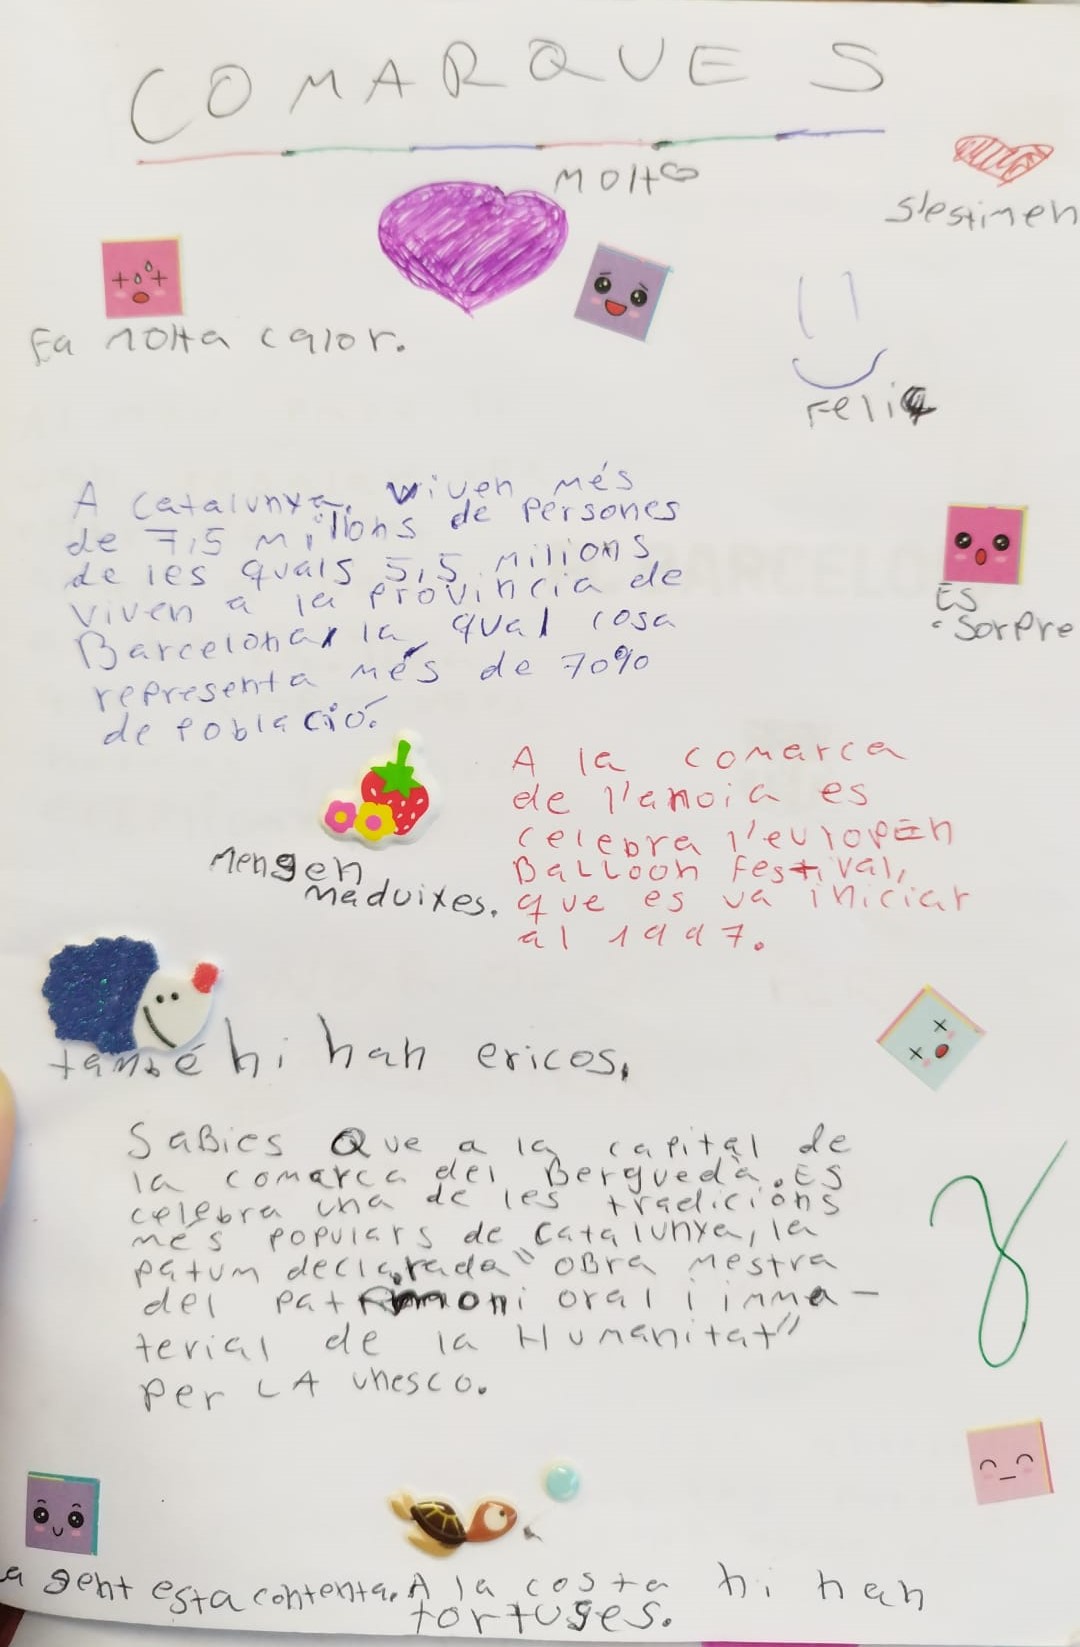 COMARQUES
Molt
s'estimen
Fa molta calor.
Feliç
A Catalunya, viven més
de 7,5 milions de Persones
de les quals 5,5 milions
viven a la Provincia de
Barcelona, la qual cosa
representa més de 70%
de Població.
Es
Sorpre
A la comarca
de l'anoia es
celebra l'europEn
BaLLoon Festival,
que es va iniciar
al 1997.
Mengen
maduixes.
també hi han ericos.
SaBies Que a la capital de
la comarca del Berguedà. Es
celebra una de les tradicións
més populars de Catalunya, la
patum declarada "oBra mestra
del patRimoni oral i imma-
terial de la Humanitat"
per LA unesco.
a gent esta contenta. A la costa hi han
tortuges.